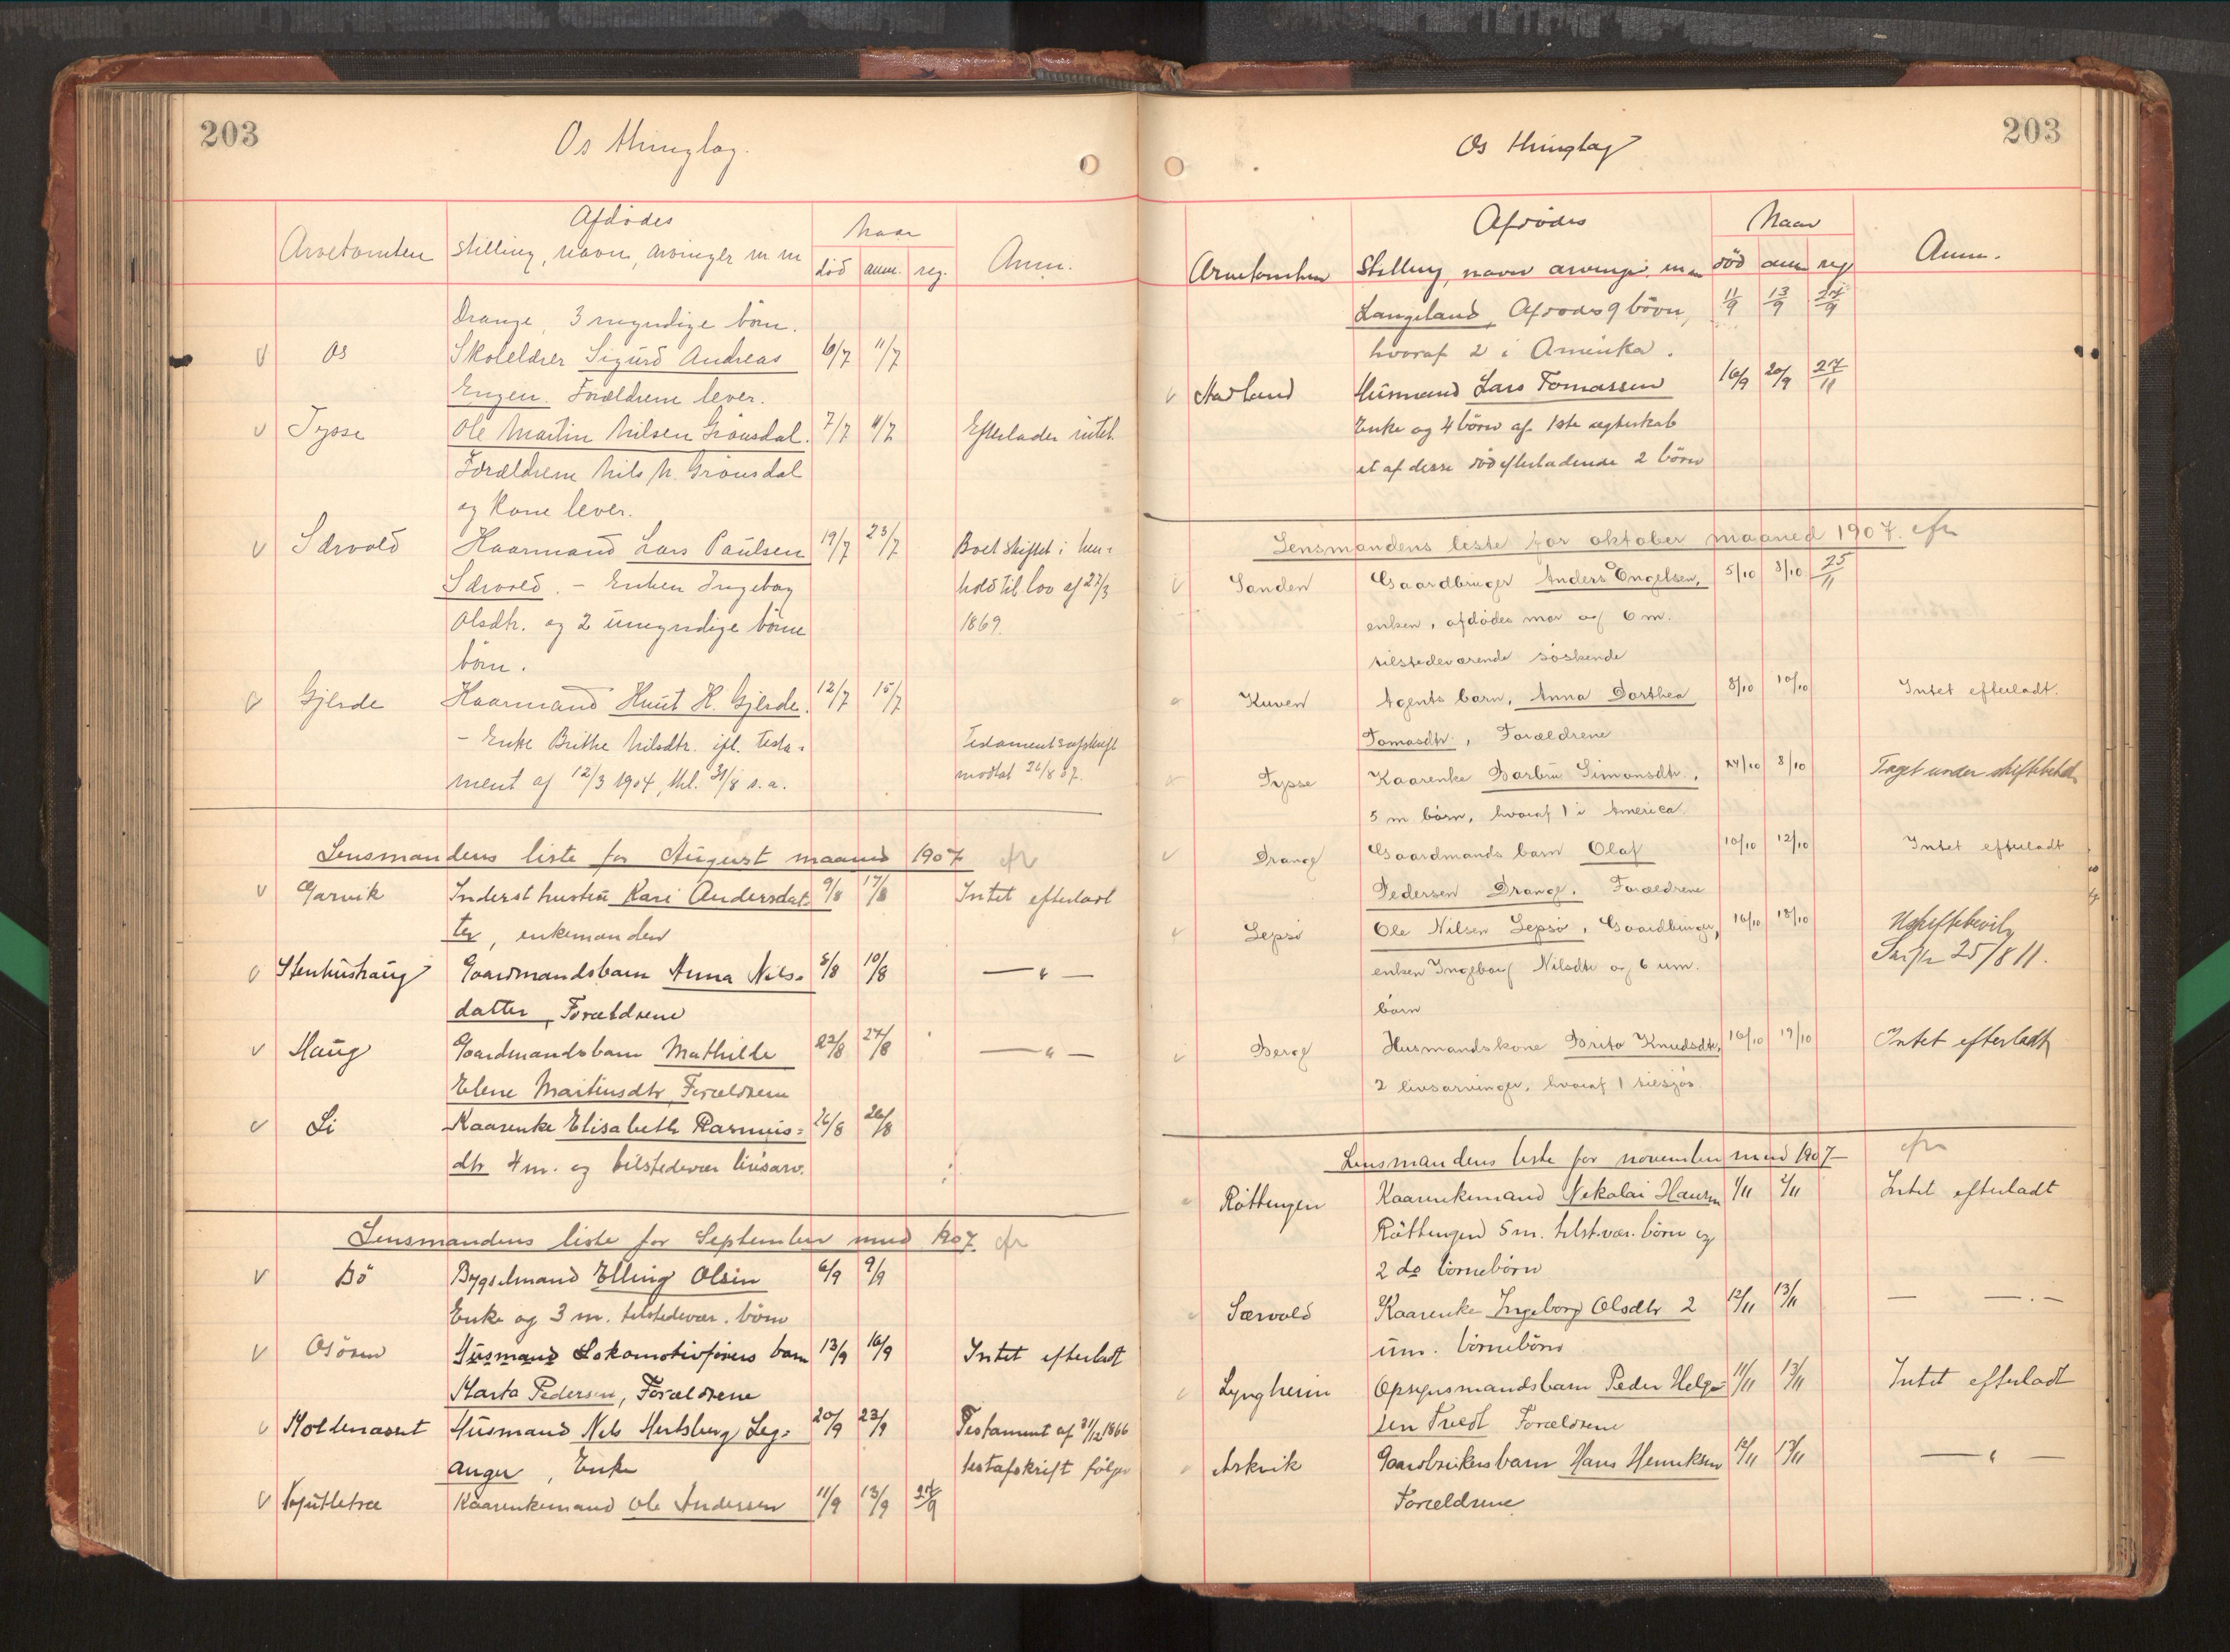 203
Os thinglag.
Arvetomten Afdödes stilling, navn, arvinger m m Naar död anm. reg. Anm.
Drange, 3 myndige börn.
v Os Skoleldrer Sigurd Andreas 6/7 11/7
Engen. Forældrene lever.
v Tysse Ole Martin Nilsen Grönsdal. 7/7 11/7 Efterlader intet.
Forældrene Nils N. Grönsdal
og Kone lever.
v Särvold Kaarmand Lars Paulsen 19/7 23/7 Boet skiftet i hen-
Särvold. - Enken Ingeborg hold til lov af 27/3
Olsdtr. og 2 umyndige börne 1869.
börn.
v Gjerde Kaarmand Knut H. Gjerde. 12/7 15/7
- Enke Brithe Nilsdtr. ifl. testa- Testamentsafskrift
ment af 12/3 1904, thl. 31/8 s.a. modtat 26/8 07.
Lensmandens liste for August maaned 1907 efr
v Garvik Inderst hustru Kari Andersdat- 9/8 17/8 Intet efterladt
ter, enkemanden
v Stenhushaug Gaardmandsbarn Anna Nils- 5/8 10/8 — " —
datter, Forældrene
v Haug Gaardmandsbarn Mathilde 22/8 24/8 — " —
Elene Martinsdtr, Forældrene
v Li Kaarenke Elisabeth Rasmus- 26/8 26/8
dtr 4 m. og tilstedevær livsarv.
Lensmandens liste for September mnd 1907. efr
v Bö Bygselmand Elling Olsen 6/9 9/9
Enke og 3 m. tilstedevær. börn
v Osören Husmand Lokomotivförers barn 13/9 16/9 Intet efterladt
Marta Pedersen, Forældrene
v Moldenæset Husmand Nils Hertsberg Leg- 20/9 23/9 Testament af 31/12 1866
anger, Enke testafskrift følger
v Kjutletræ Kaarenkemand Ole Andersen 11/9 13/9 27/9
203
Os thinglag
Arvetomten Afdödes Stilling, navn arvinger m m Naar död anm reg Anm.
Langeland, Afdödes 9 börn, 11/9 13/9 27/9
hvoraf 2 i Amerika.
v Hadland Husmand Lars Tomassen 16/9 20/9 27/11
Enke og 4 börn af 1ste ægteskab
et af disse död efterladende 2 börn
Lensmandens liste for oktober maaned 1907. efr
v Sanden Gaardbruger Anders Engelsen, 5/10 8/10 25/11
enken, afdödes mor og 6 m.
tilstedeværende söskende
Kuven Agents barn, Anna Dorthea 8/10 10/10 Intet efterladt.
Tomasdtr., Forældrene
Tysse Kaarenke Barbru Simonsdtr. 24/10 8/10 Taget under skiftebehdl
5 m börn, hvoraf 1 i America.
v Drange Gaardmands barn Olaf 10/10 12/10 Intet efterladt
Pedersen Drange. Forældrene
v Lepsö Ole Nilsen Lepsö, Gaardbruger, 16/10 18/10 Uskiftebevilg
enken Ingeborg Nilsdtr og 6 um. 25/8 11.
börn
v Berge Husmandskone Brita Knudsdtr, 16/10 19/10 Intet efterladt
2 livsarvinger, hvoraf 1 tilsjös
Lensmandens liste for november mnd 1907 efr
Röttingen Kaarenkemand Nikolai Hansen 1/11 2/11 Intet efterladt
Röttingen 5 m. tilst.vær. börn og
2 do börnebörn
Særvold Kaarenke Ingeborg Olsdtr 2 12/11 13/11 — — . —
um. börnebörn
Lyngheim Opsynsmandsbarn Peder Helge- 11/11 13/11 Intet efterladt
sen Tvedt Forældrene
Askvik Gaardbrukersbarn Hans Henriksen 12/11 13/11 — " —
Forældrene